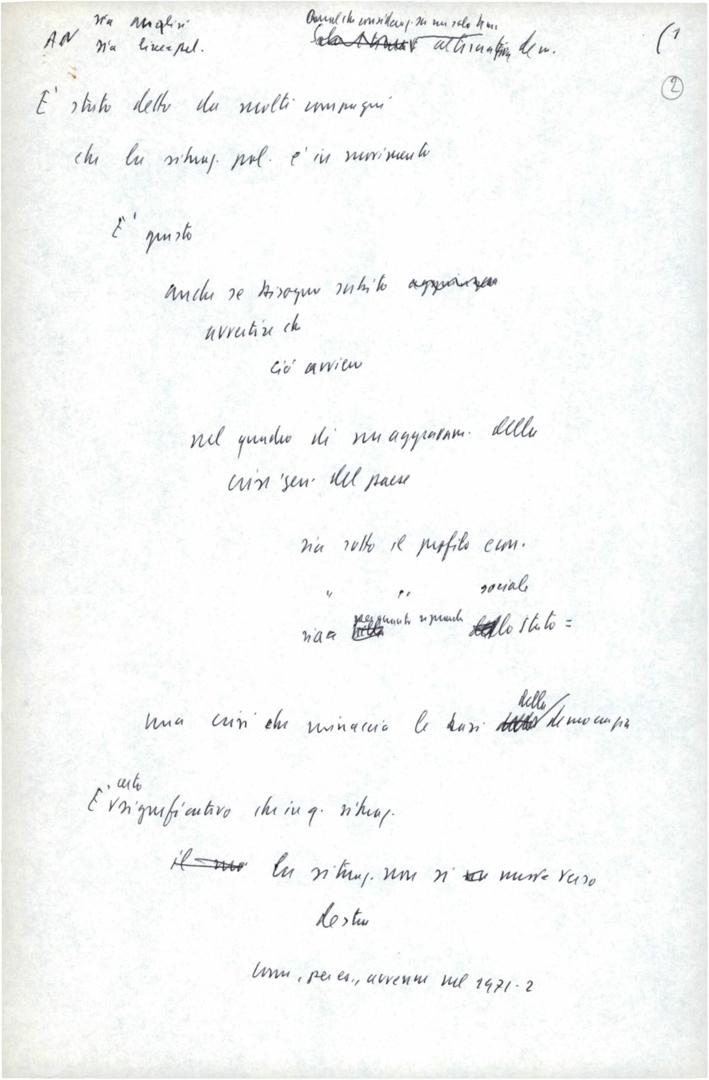 AN sia analisi
sia linea pol.
alternativa dem.
(1
2
E' stato detto da molti compagni
che la situaz. pol. è in movimento
E' giusto
anche se bisogna subito
avvertire che
ciò avviene
nel quadro di un aggravam. della
crisi gen. del paese
sia sotto il profilo econ.
" " sociale
sia per quanto riguarda lo Stato =
una crisi che minaccia le basi della democrazia
E' certo significativo che in q. situaz.
il la situaz. non si muove verso
destra
come, per es., avvenne nel 1971-2